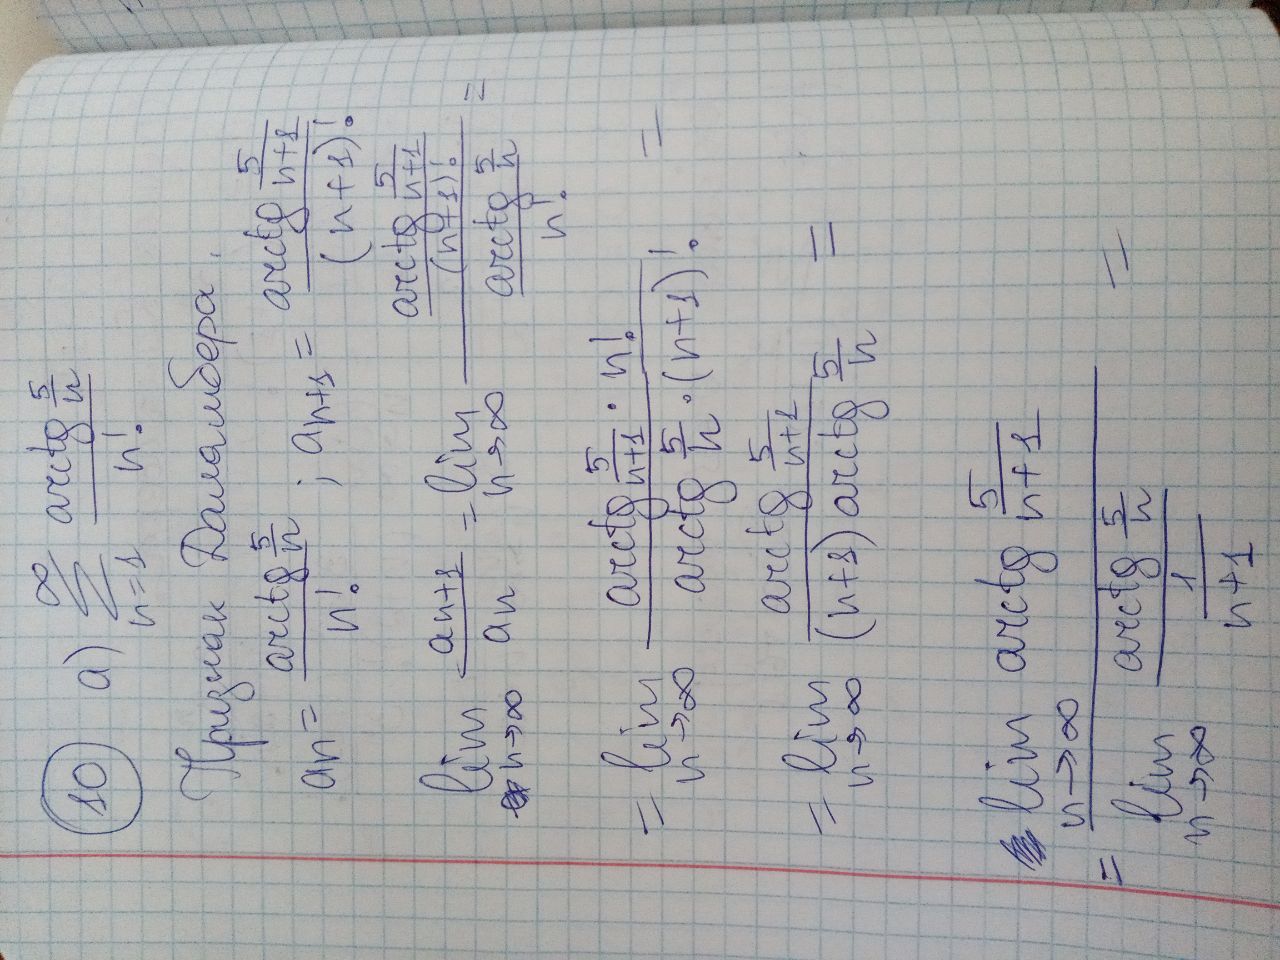 10 а) ∑_{n=1}^{∞} \frac{arctg \frac{5}{n}}{n!}
Признак Даламбера.
a_n = \frac{arctg \frac{5}{n}}{n!} ; a_{n+1} = \frac{arctg \frac{5}{n+1}}{(n+1)!}
lim_{n→∞} \frac{a_{n+1}}{a_n} = lim_{n→∞} \frac{\frac{arctg \frac{5}{n+1}}{(n+1)!}}{\frac{arctg \frac{5}{n}}{n!}} =
= lim_{n→∞} \frac{arctg \frac{5}{n+1} · n!}{arctg \frac{5}{n} · (n+1)!} =
= lim_{n→∞} \frac{arctg \frac{5}{n+1}}{(n+1) arctg \frac{5}{n}} =
= \frac{lim_{n→∞} arctg \frac{5}{n+1}}{lim_{n→∞} \frac{arctg \frac{5}{n}}{\frac{1}{n+1}}} =